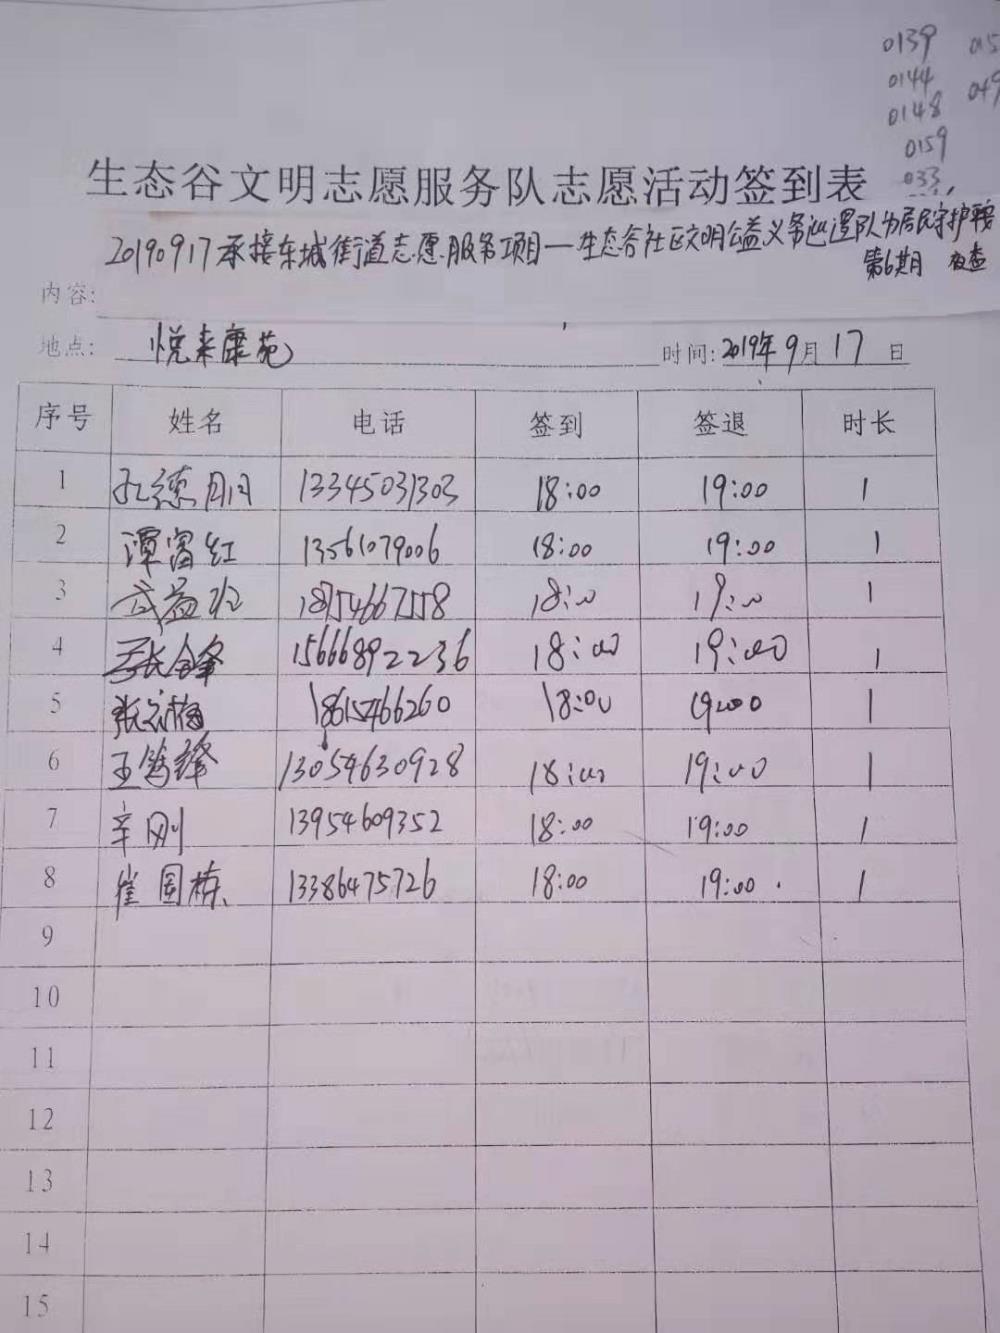 0139
0144
0148
0159
033
生态谷文明志愿服务队志愿活动签到表
20190917承接东城街道志愿服务项目—生态谷社区文明公益义务巡逻队为居民守护平安
第6期
内容:
地点: 悦来康苑 时间: 2019年9月17日
序号 姓名 电话 签到 签退 时长
1 孔德明 13345031303 18:00 19:00 1
2 谭富红 13561079006 18:00 19:00 1
3 18:00 19:00 1
4 15666892236 18:00 19:00 1
5 18615466260 18:00 19:00 1
6 13054630928 18:00 19:00 1
7 辛刚 13954609352 18:00 19:00 1
8 崔国栋 13386475726 18:00 19:00 1
9
10
11
12
13
14
15